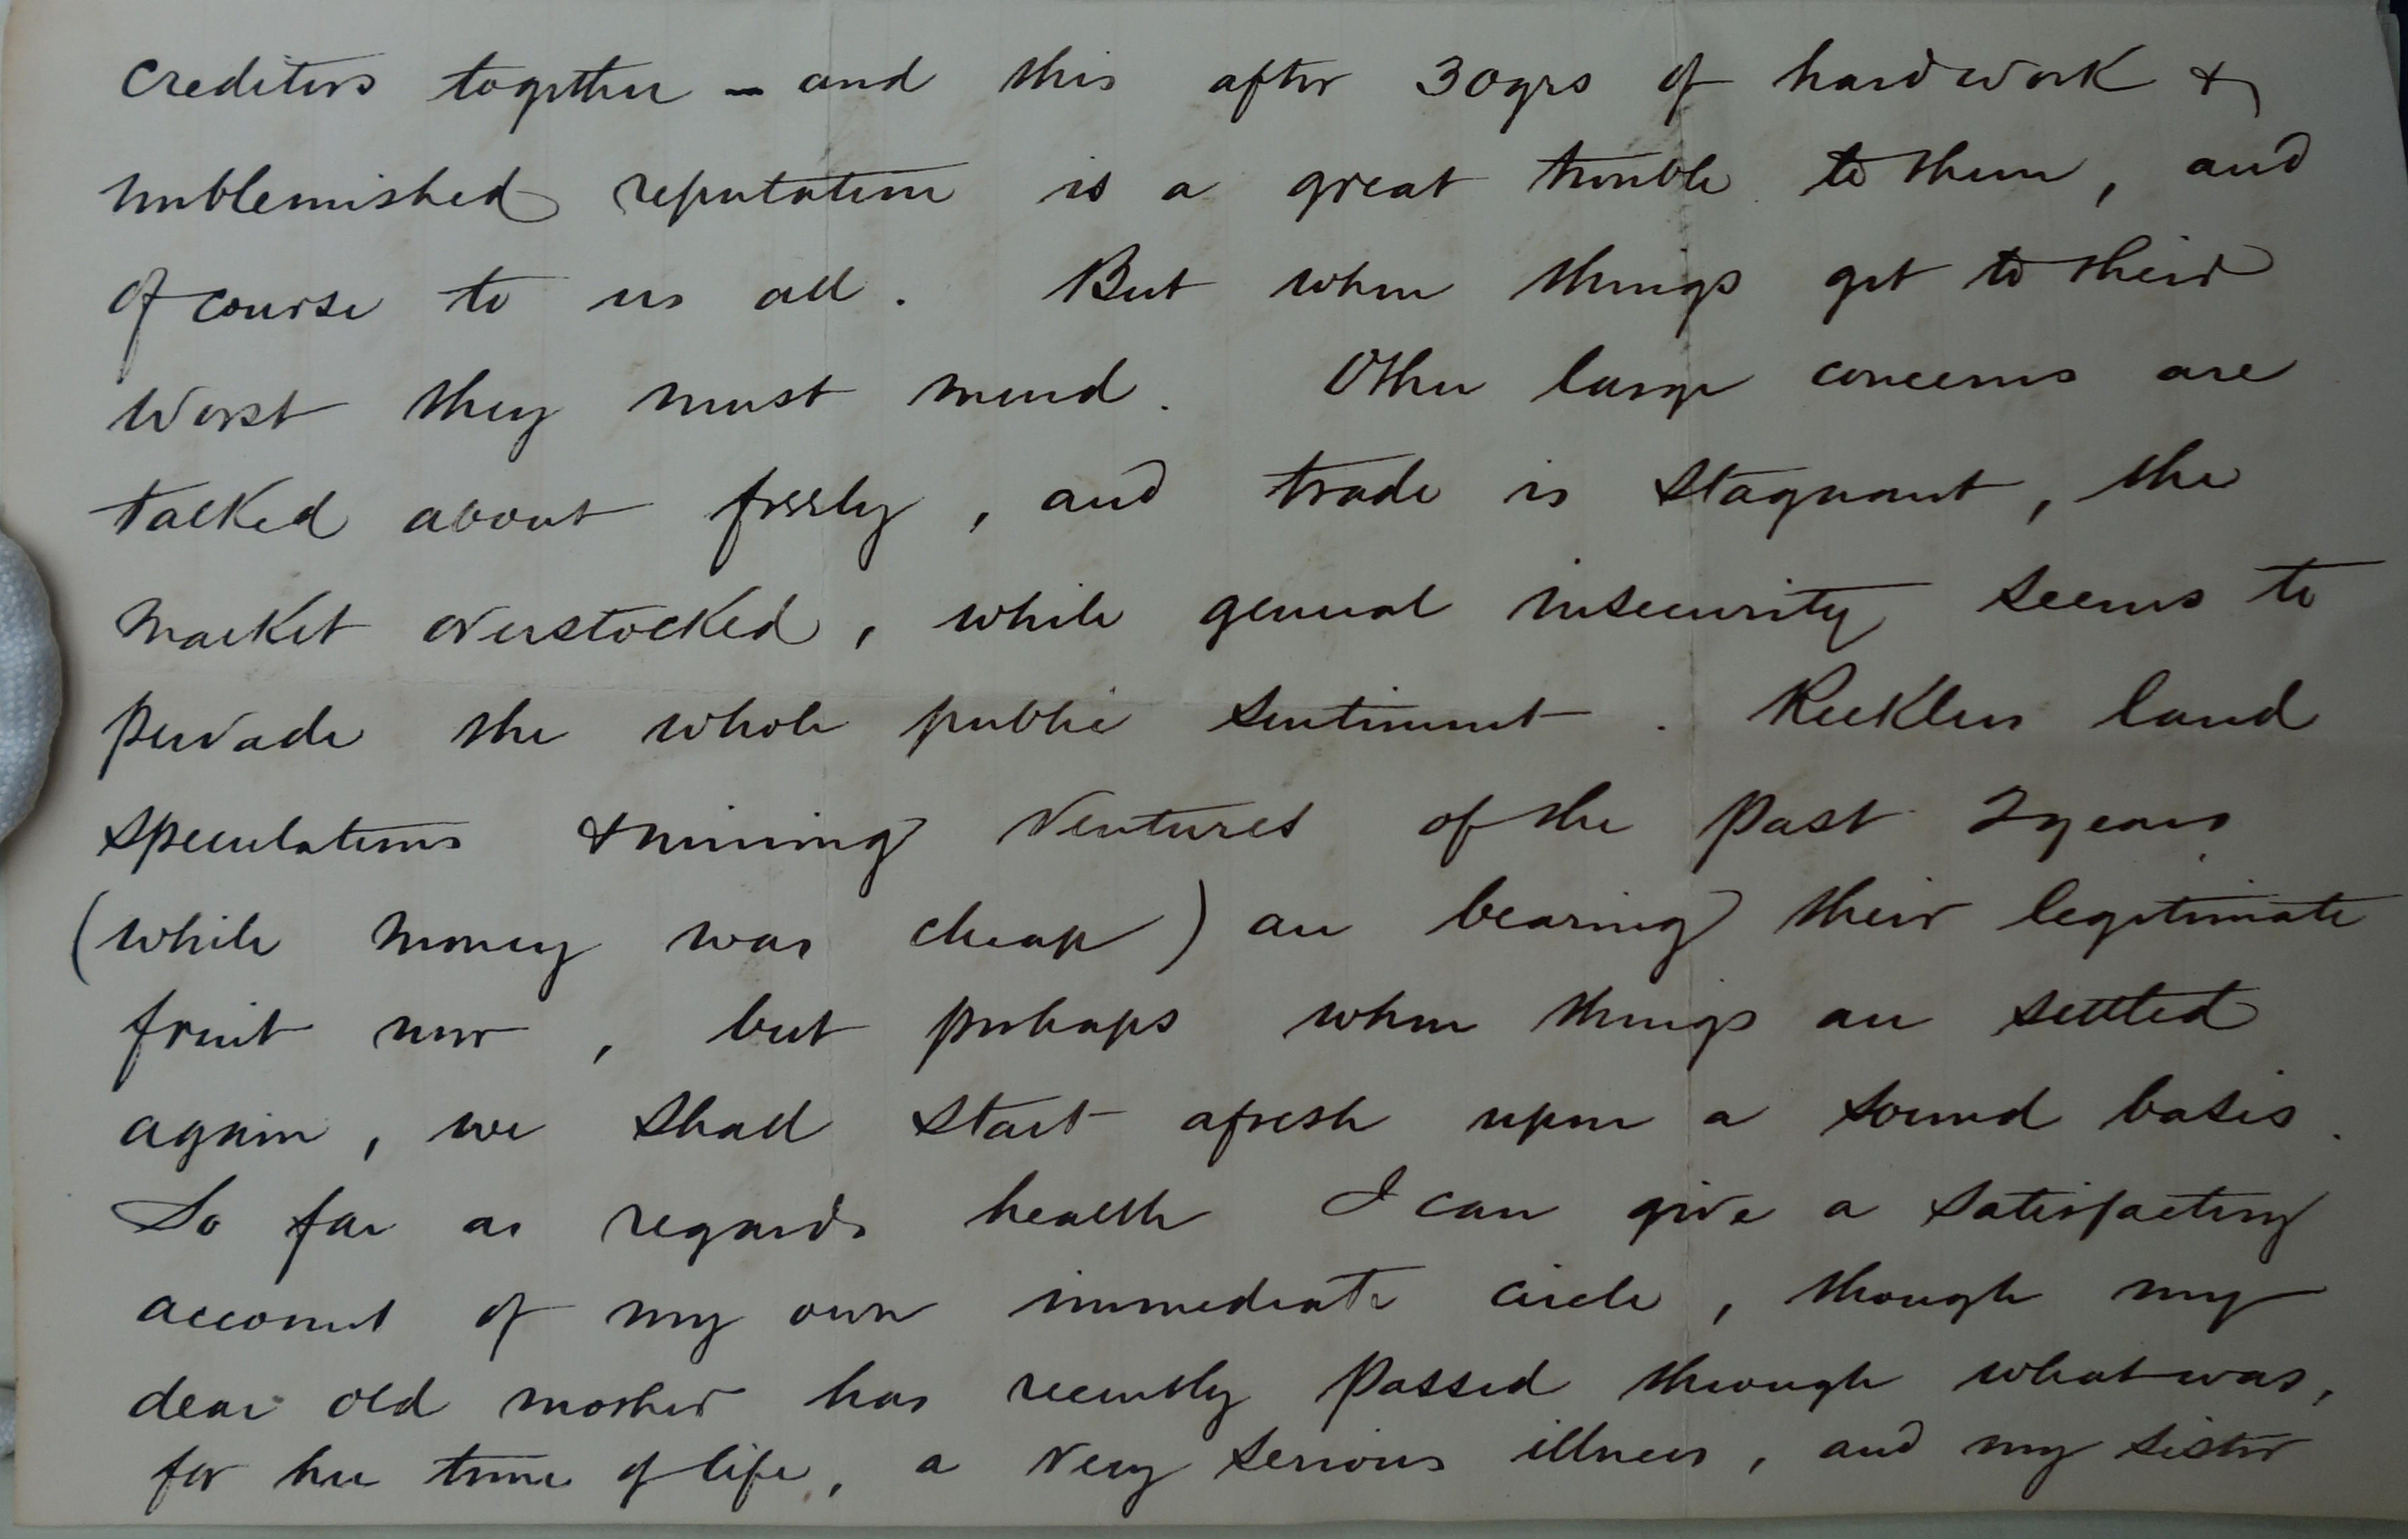 creditors together – and this after 30yrs of hard work &
unblemished reputation is a great trouble to them, and
of course to us all. But when things get to their
worst they must mend. Other large concerns are
talked about freely, and trade is stagnant, the
market overstocked, while general insecurity seems to
pervade the whole public sentiment. Reckless land
speculations & mining ventures of the past 2 years
(while money was cheap) are bearing their legitimate
fruit now, but perhaps when things are settled
again, we shall start afresh upon a sound basis.
So far as regards health I can give a satisfactory
account of my own immediate circle, though my
dear old mother has recently passed through what was,
for her time of life, a very serious illness, and my sister